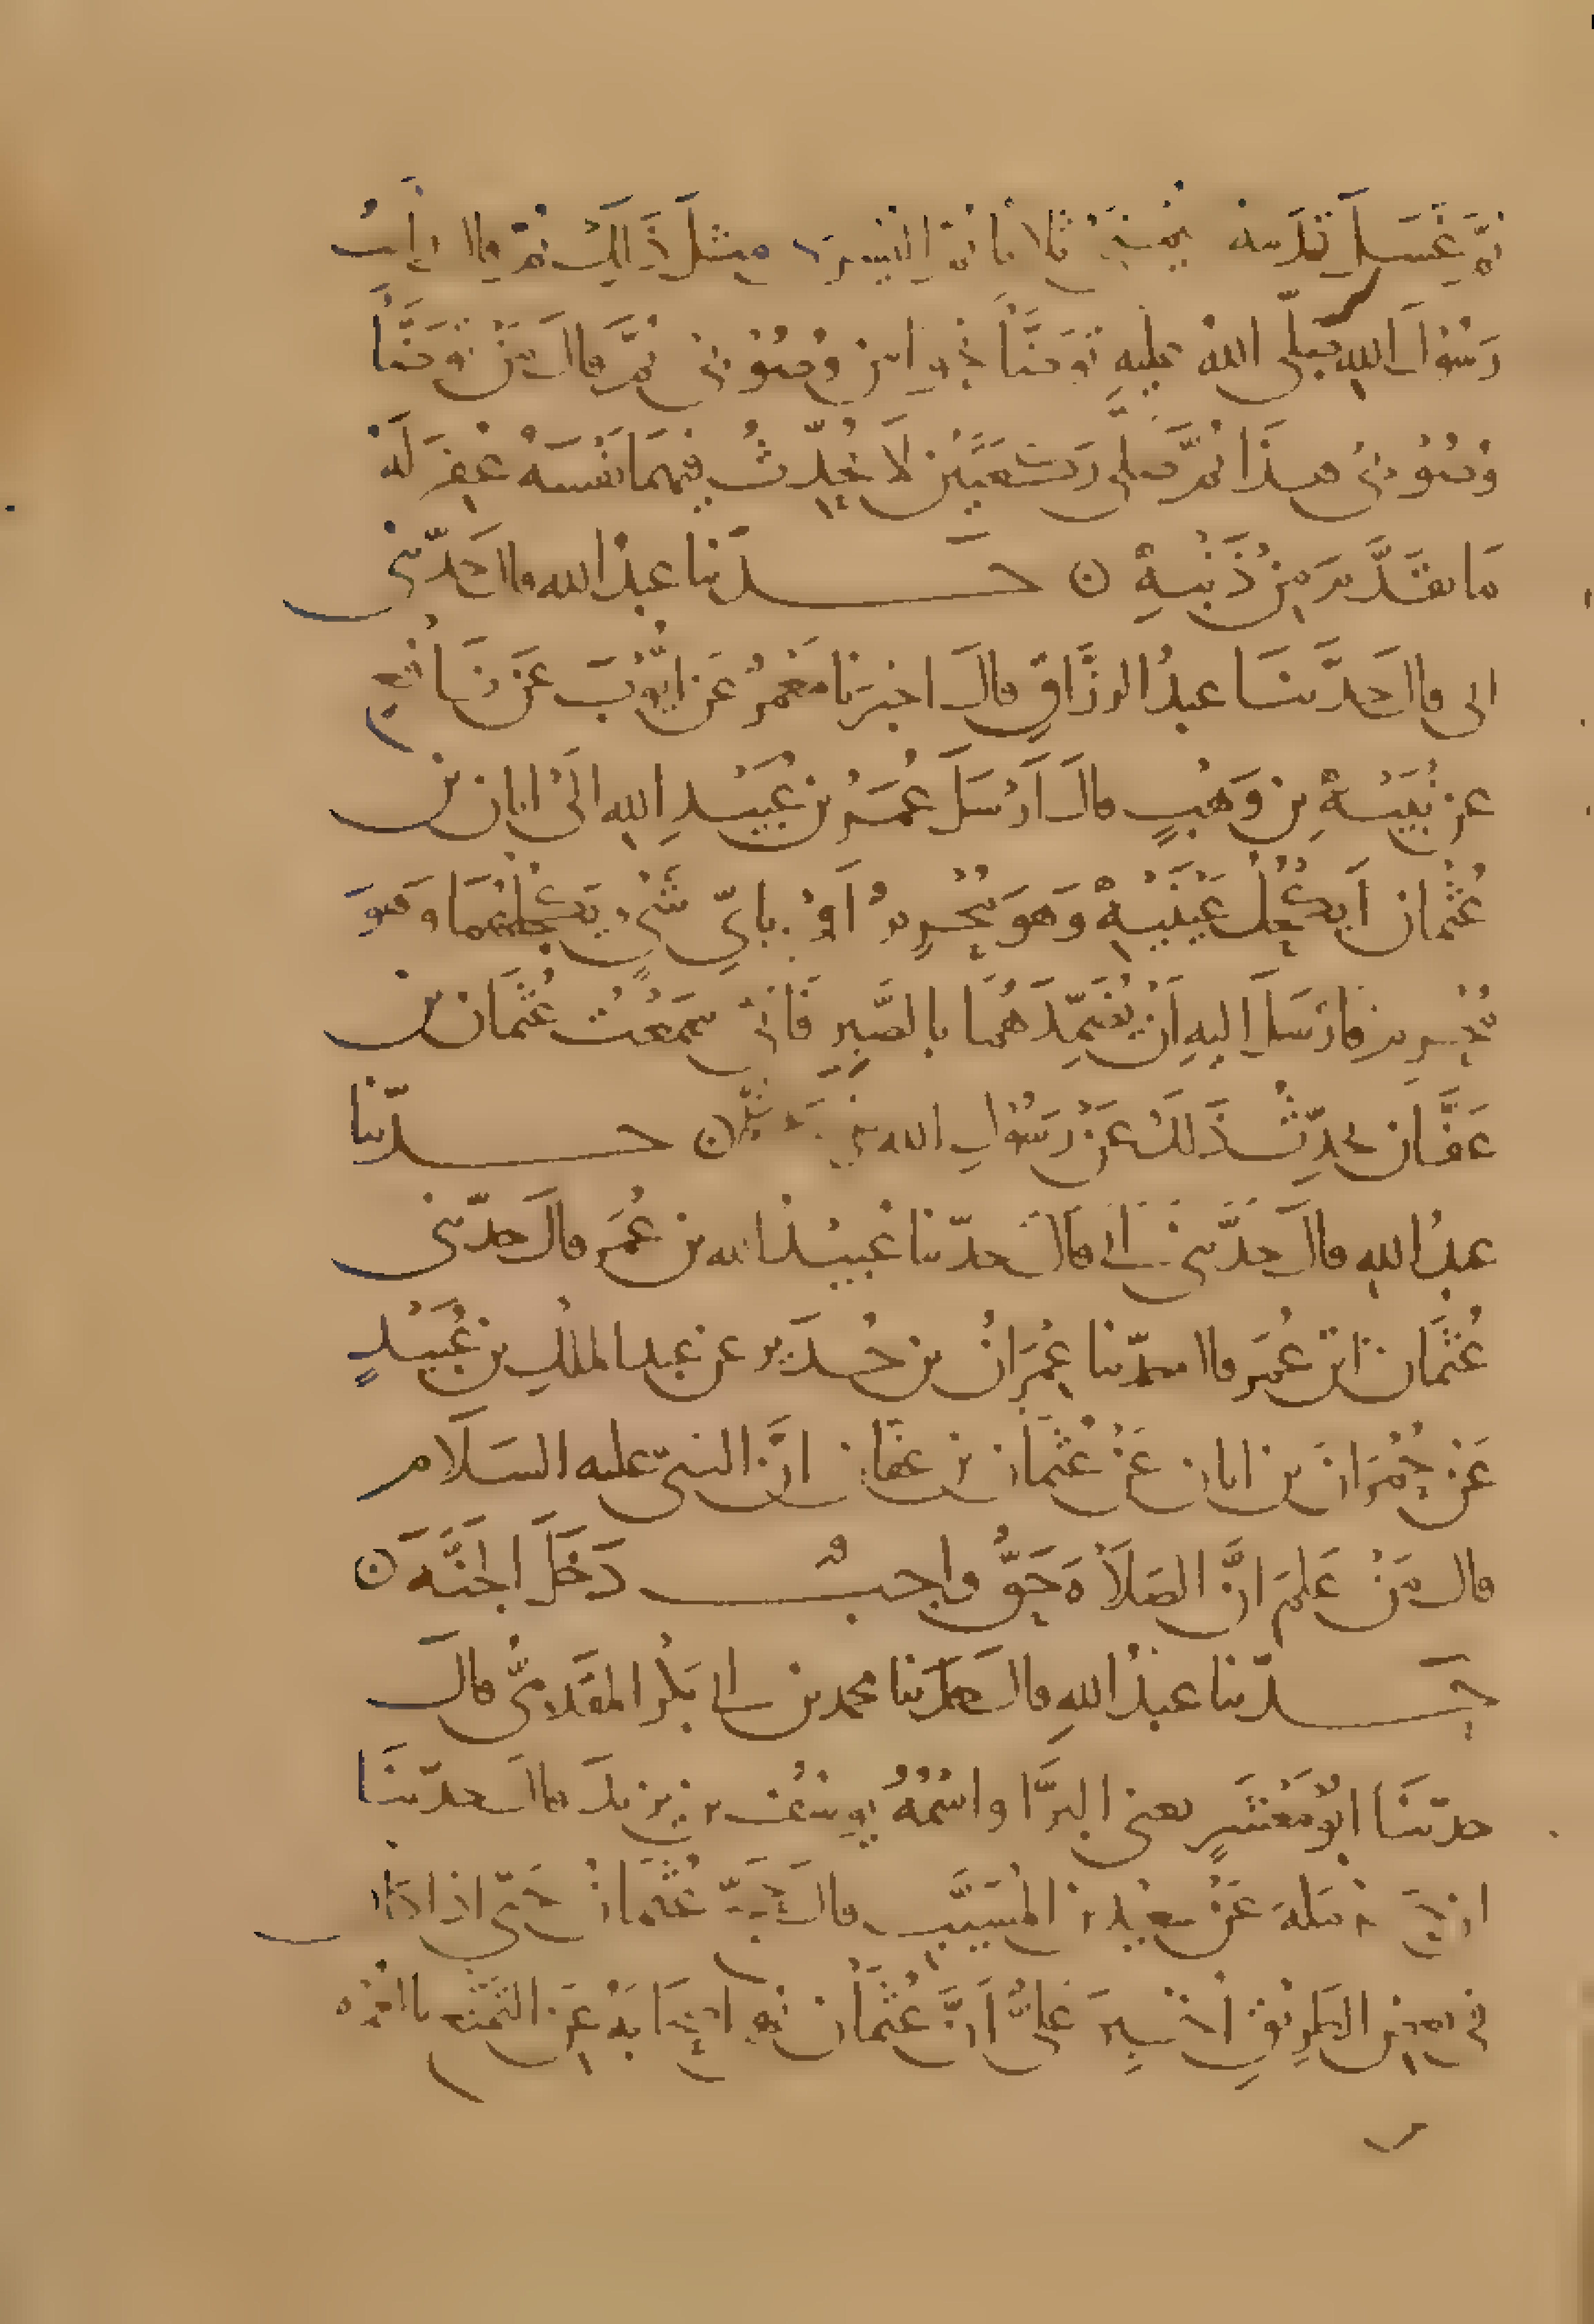 ثُمَّ غَسَلَ قَدَمه اليمنى ثلاثا ثمّ اليسرى مثلَ ذَالِكَ ثمّ قال رأيتُ
رَسُولَ اللهِ صلّى اللهُ عليهِ تَوَضَّأَ نحوا من وُضُوْئى ثمَّ قالَ مَنْ تَوَضَّأَ
وُضُوْئى هذَا ثمَّ صلّى رَكْعَتَيْن لَا يُحَدِّثُ فِيهِمَا نَفْسَهُ غُفِرَ لَهُ
مَا تقَدَّمَ مِنْ ذَنْبِهِ ن حَدّثنا عبدُ الله قال حَدّثنى
ابى قال حَدَّثنَا عبدُ الرزَّاقِ قالَ اخبرَنا مَعْمَرُ عَن ايُّوْبَ عَنْ نَافِعٍ
عن نُبَيْهِ بن وَهْبٍ قالَ اَرْسَلَ عُمَرُ بن عُبَيْدِ اللهِ الَىْ ابان بن
عُثْمان اَيكْحُلُ عَيْنَيْهِ وَهوَ مُحْرِمٌ اَوْ باىِّ شَىْءٍ يَكْحُلْهُمَا وَهوَ
مُحْرِم فارْسَلَ اِليهِ اَنْ يُضَمِّدَهُمَا بالصَّبِرِ فَانّى سَمِعْتُ عُثْمَان بن
عَفَّان يحدِّثُ ذَلكَ عَنْ رَسُوْلِ الله ن حدّثنا
عبدُ اللهِ قالَ حَدَّثنى ابى قالَ حدّثنا عُبيْدُ الله بن عُمَر قالَ حدّثنى
عُثمَان بن عُمَر قال حدّثنا عِمْرَانُ بن حُدَيْر عن عبد الملكِ بن عُبَيْدٍ
عَنْ حُمْرَانَ بن ابان عَنْ عُثْمَان بن عفان انَّ النبىّ عليه السَلَام
قال مَنْ عَلِمَ انَّ الصَلَاةَ حَقٌّ واجبٌ دَخَلَ الجَنَّهَ ن
حَدّثنا عبْدُ اللهِ قال حدّثنا محمد بن ابى بَكْر المقَدّمىُّ قالَ
حدّثنَا ابُوْ مَعْشَرٍ يعنى البرَّا واسْمُهُ يُوسُفُ بن يزيدَ قالَ حدّثنَا
ابن حَرْمَلةَ عَنْ سعيْد بن المُسَيَّبِ قالَ حَجَّ عُثمَانُ حَتّى اذا كان
فى بعضِ الطرِيْقِ اُخْبِرَ عَلىٌّ اَنَّ عُثْمَان نهى اصْحَابَهُ عَنِ التَمَتُّعِ بالعُمْرَه